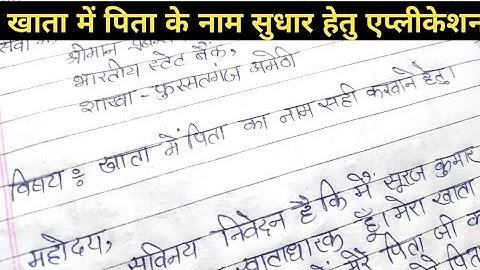 खाता में पिता के नाम सुधार हेतु एप्लीकेशन
श्रीमान
भारतीय स्टेट बैंक,
शाखा - फुरसतगंज अमेठी
विषय : खाता में पिता का नाम सही करवाने हेतु।
महोदय,
सविनय निवेदन है कि मैं सूरज कुमार
खाताधारक हूँ। मेरा खाता
मेरे पिता जी का